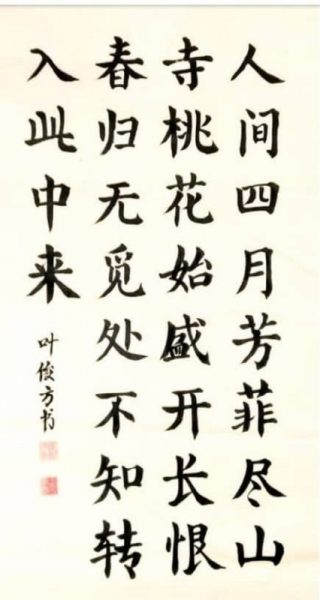 人间四月芳菲尽山
寺桃花始盛开长恨
春归无觅处不知转
入此中来
叶俊方书